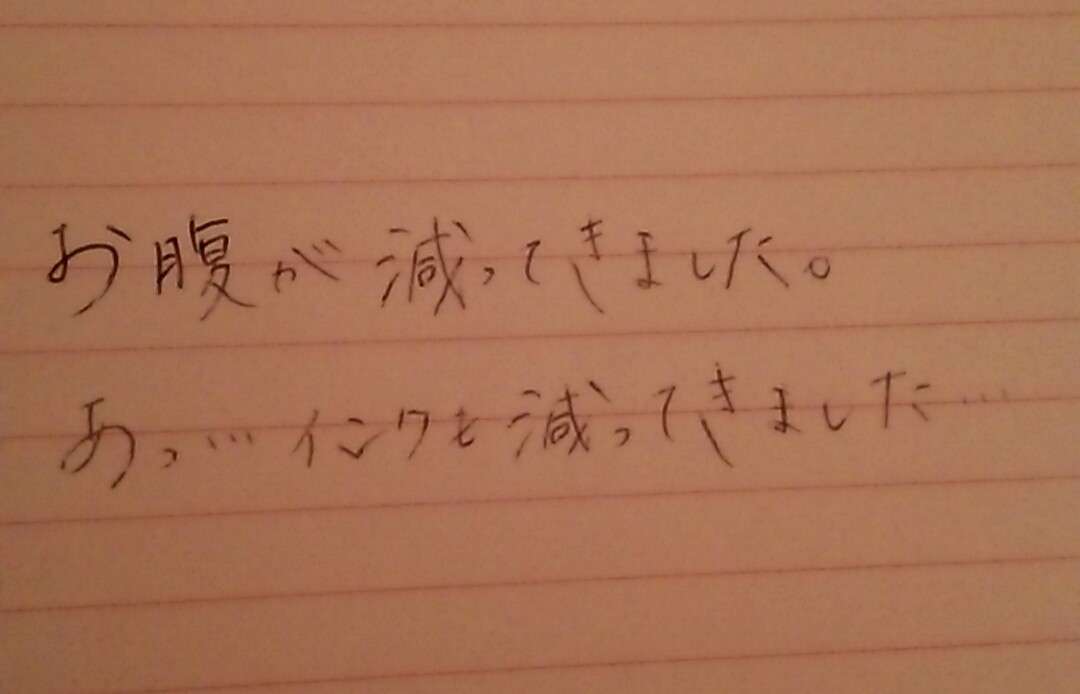 お腹が減ってきました。
あっ…インクも減ってきました…